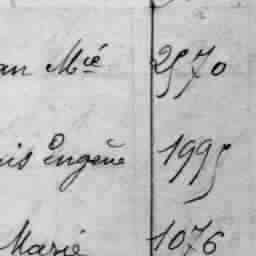 an Mié 2570
is Eugène 1995
Marie 1076